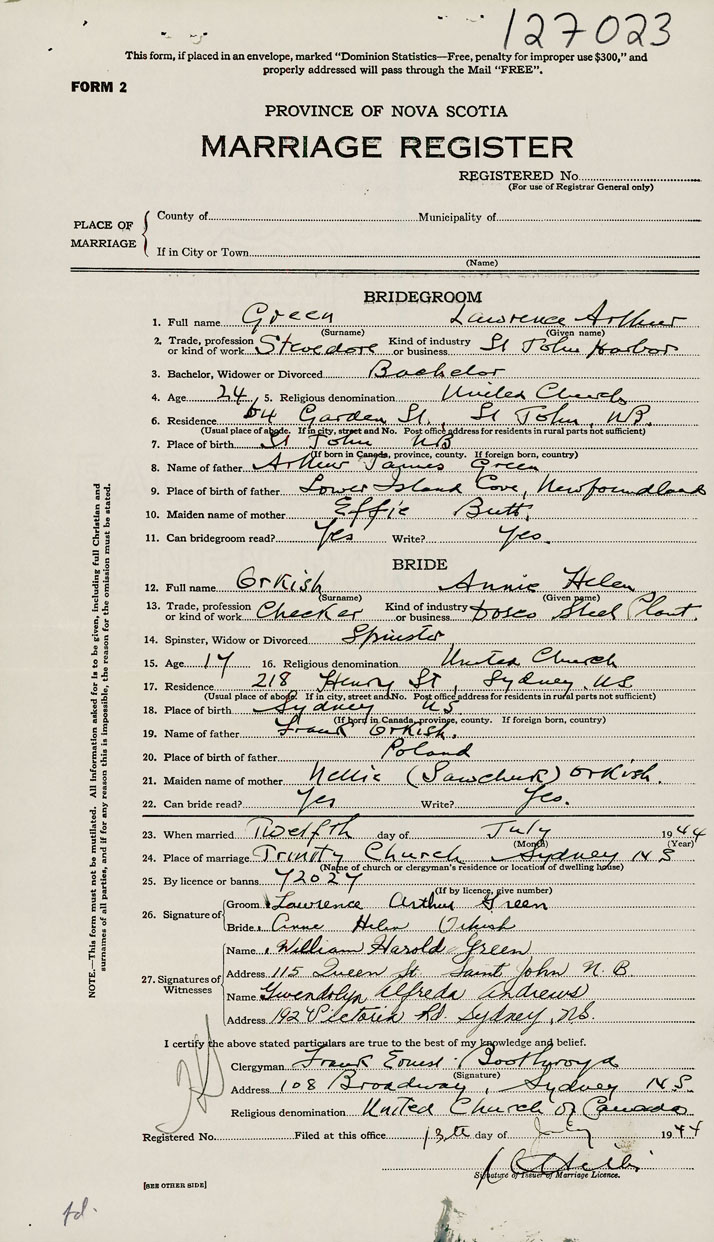 127023
This form, if placed in an envelope, marked "Dominion Statistics—Free, penalty for improper use $300," and
properly addressed will pass through the Mail "FREE".
FORM 2
PROVINCE OF NOVA SCOTIA
MARRIAGE REGISTER
REGISTERED No.
(For use of Registrar General only)
PLACE OF MARRIAGE
County of Municipality of
If in City or Town
(Name)
BRIDEGROOM
1. Full name Green Lawrence Arthur
(Surname) (Given name)
2. Trade, profession or kind of work Stevedore Kind of industry or business St John Harbor
3. Bachelor, Widower or Divorced Bachelor
4. Age 24 5. Religious denomination United Church
6. Residence 64 Garden St., St John, NB.
(Usual place of abode. If in city, street and No. Post office address for residents in rural parts not sufficient)
7. Place of birth St John NB
(If born in Canada, province, county. If foreign born, country)
8. Name of father Arthur James Green
9. Place of father Lower Island Cove, Newfoundland
10. Maiden name of mother Effie Butt.
11. Can bridegroom read? Yes Write? Yes.
BRIDE
12. Full name Orkish Annie Helen
(Surname) (Given name)
13. Trade, profession or kind of work Checker Kind of industry or business Dosco Steel Plant.
14. Spinster, Widow or Divorced Spinster
15. Age 17 16. Religious denomination United Church
17. Residence 218 Henry St, Sydney, NS
(Usual place of abode. If in city, street and No. Post office address for residents in rural parts not sufficient)
18. Place of birth Sydney NS
(If born in Canada, province, county. If foreign born, country)
19. Name of father Frank Orkish.
20. Place of birth of father Poland
21. Maiden name of mother Nellie (Sawchuk) Orkish.
22. Can bride read? Yes Write? Yes.
23. When married Twelfth day of July 1944
(Month) (Year)
24. Place of marriage Trinity Church Sydney N S
(Name of church or clergyman's residence or location of dwelling house)
25. By licence or banns 72027
(If by licence, give number)
26. Signature of
Groom Lawrence Arthur Green
Bride Anne Helen Orkish
27. Signatures of Witnesses
Name William Harold Green
Address 115 Queen St. Saint John N. B.
Name Gwendolyn Alfreda Andrews
Address 192 Victoria Rd. Sydney, N.S.
I certify the above stated particulars are true to the best of my knowledge and belief.
Clergyman Frank Ernest Boothroyd
(Signature)
Address 108 Broadway, Sydney N S.
Religious denomination United Church of Canada
Registered No. Filed at this office 13th day of July 1944
Signature of Issuer of Marriage Licence.
[SEE OTHER SIDE]
NOTE.—This form must not be mutilated. All information asked for is to be given, including full Christian and
surnames of all parties, and if for any reason this is impossible, the reason for the omission must be stated.